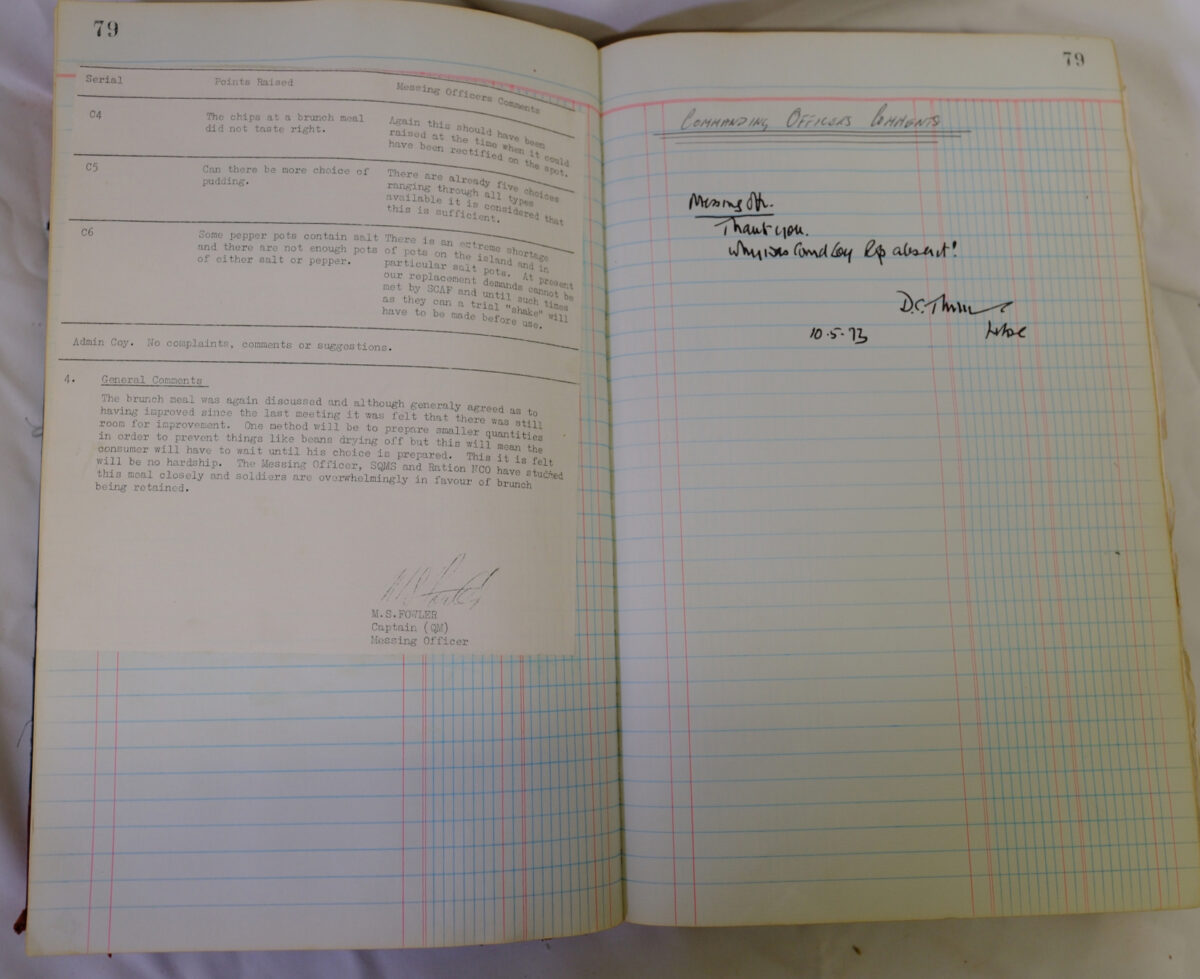 79
Serial Points Raised Messing Officers Comments
C4 The chips at a brunch meal
did not taste right.
Again this should have been
raised at the time when it could
have been rectified on the spot.
C5 Can there be more choice of
pudding.
There are already five choices
ranging through all types
available it is considered that
this is sufficient.
C6 Some pepper pots contain salt
and there are not enough pots
of either salt or pepper.
There is an extreme shortage
of pots on the island and in
particular salt pots. At present
our replacement demands cannot be
met by SCAF and until such times
as they can a trial "shake" will
have to be made before use.
Admin Coy. No complaints, comments or suggestions.
4. General Comments
The brunch meal was again discussed and although generaly agreed as to
having improved since the last meeting it was felt that there was still
room for improvement. One method will be to prepare smaller quantities
in order to prevent things like beans drying off but this will mean the
consumer will have to wait until his choice is prepared. This it is felt
will be no hardship. The Messing Officer, SQMS and Ration NCO have studied
this meal closely and soldiers are overwhelmingly in favour of brunch
being retained.
M.S.FOWLER
Captain (QM)
Messing Officer
79
COMMANDING OFFICERS COMMENTS
Messing Offr.
Thank you.
Why was Comd Coy Rep absent!
D.C.
10.5.73